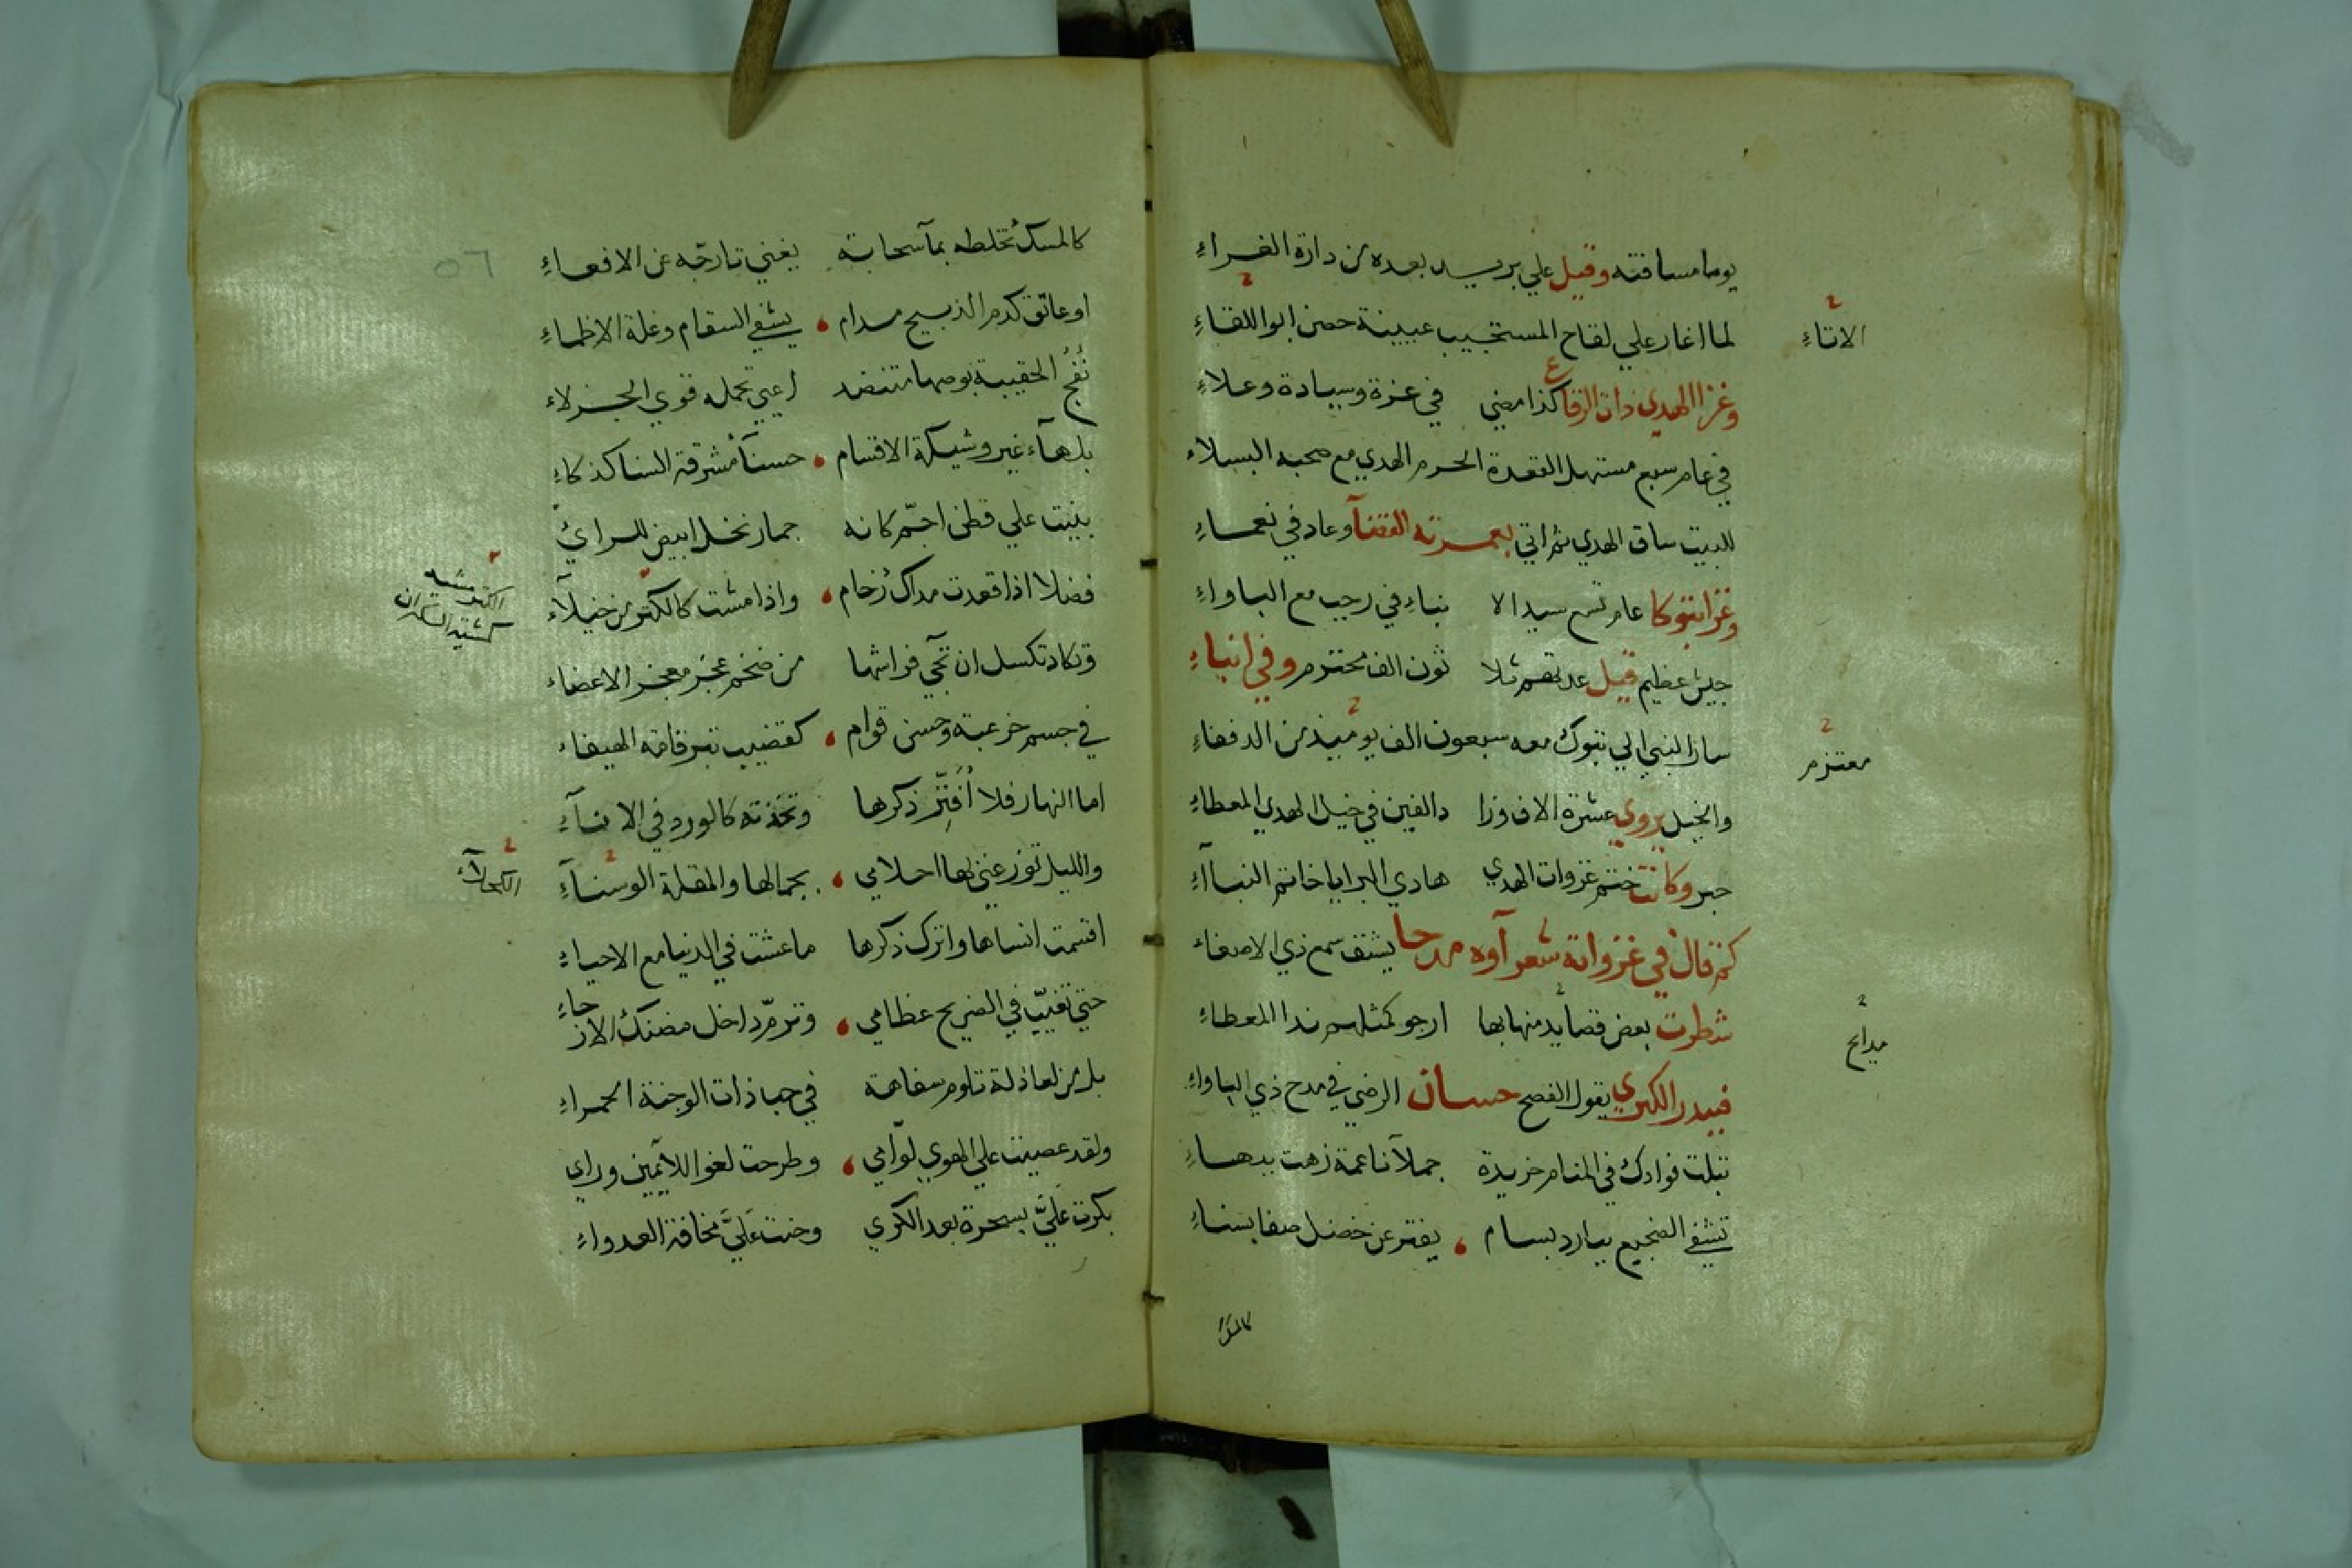 يوما مسافته وقيل علي بريد بعده من دارة الغراءِ
لما اغار علي لقاح المستجيب عيينة حصن ابو اللقاءِ
الاتاءِ
وغزا الهدي ذات الرقاع كذا مضي في عزة وسيادة وعلاءِ
في عام سبع مستهل القعدة الحرم الهدي مع صحبه البسلاء
للبيت ساق الهدي ثم اتي بعمرته القضآ وعاد في نعماءِ
وغزا تبوكا عام تسع سيد الا نباءِ في رجب مع الباواءِ
جيش عظيم قيل عدتهم ثلا ثون الف محترم وفي انباءِ
سار النبي الي تبوك معه سبعون الف يوميذ من الدفعاءِ
معتزم
والخيل يروي عشرة الاف وزا دالفين في خيل الهدي المعطاءِ
حبر وكانت ختم غزوات الهدي هادي البرايا خاتم النباآءِ
كم قال في غزواته شعرآوه مدحا يشنف سمع ذي الاصغاء
شطرت بعض قصايد منها بها ارجو كمثلهم ندا المعطاءِ
مدايح
فببدر الكبري يقول الفصح حسان الرضي في مدح ذي الباواءِ
تبلت فوادك في المنام خريدة جملآ ناعمة زهت ببهاءِ
تشفي الضجيع ببارد بسام يفتر عن خضل صفا بسناءِ
كالمسك
٥٦
كالمسك تخلطه بمآ سحابة يغني تارجّه عن الافعاءِ
او عاتق كدم الذبيح مدام يشفي السقام وغلة الاظماءِ
نُفُجُ الحقيبة بوصها متنضد اعيي تحمله قوي الجزلاء
بلهآء غير وشيكة الاقسام حسنآ مشرقة السنا كذكاءِ
بنيت علي قطن اجمّ كانه جمار نخل ابيض للرائ
فضلا اذا قعدت مداك رخام واذا مشت كالكتو من خيلآء
الكتو مشيه
كمشية السكران
وتكاد تكسل ان تجي فراشها من ضخم عجز معجز الاعضاء
في جسم خرعبة وحسن قوام كقضيب تبر قامة الهيفاء
اما النهار فلا أُفَتِّر ذكرها وتخذته كالورد في الانآءِ
والليل توزعني بها احلامي بجمالها والمقلة الوسنآءِ
الكحلآءِ
اقسمت انساها واترك ذكرها ما عشت في الدنيا مع الاحياءِ
حتي تغيّب في الضريح عظامي وترمّ داخل مضنك الارجاءِ
بل من لعاذلة تلوم سفاهة في حب ذات الوجنة الحمراءِ
ولقد عصيت علي الهوي لوّامي وطرحت لغو اللايمين وراي
بكرت عَلَيّ بسحرة بعد الكري وحنت عَلَيَّ مخافة العدواءِ